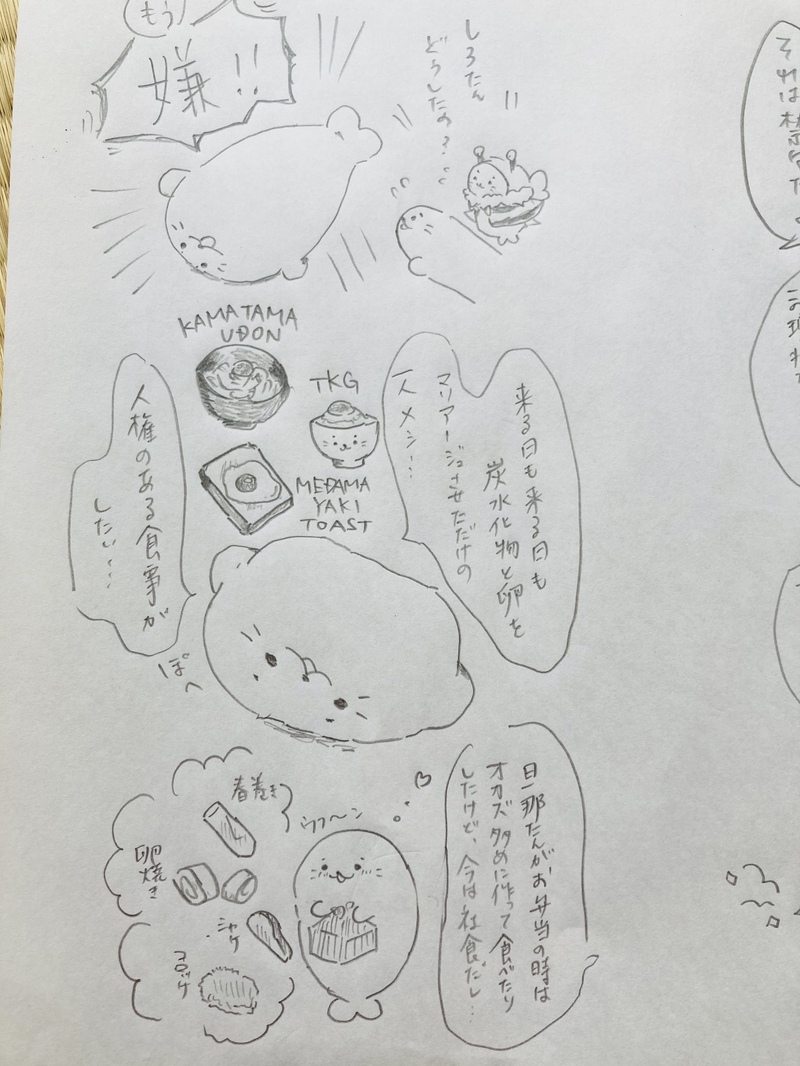 もう
嫌!!
しろたん
どうしたの?
KAMATAMA
UDON
TKG
MEDAMA
YAKI
TOAST
来る日も来る日も
炭水化物と卵を
マリアージュさせただけの
一人メシ…
人権のある食事が
したい…
ぽへ
旦那たんがお弁当の時は
オカズ多めに作って食べたり
したけど、今は社食だし…
ウフーン
春巻き
卵焼き
シャケ
コロッケ
それは